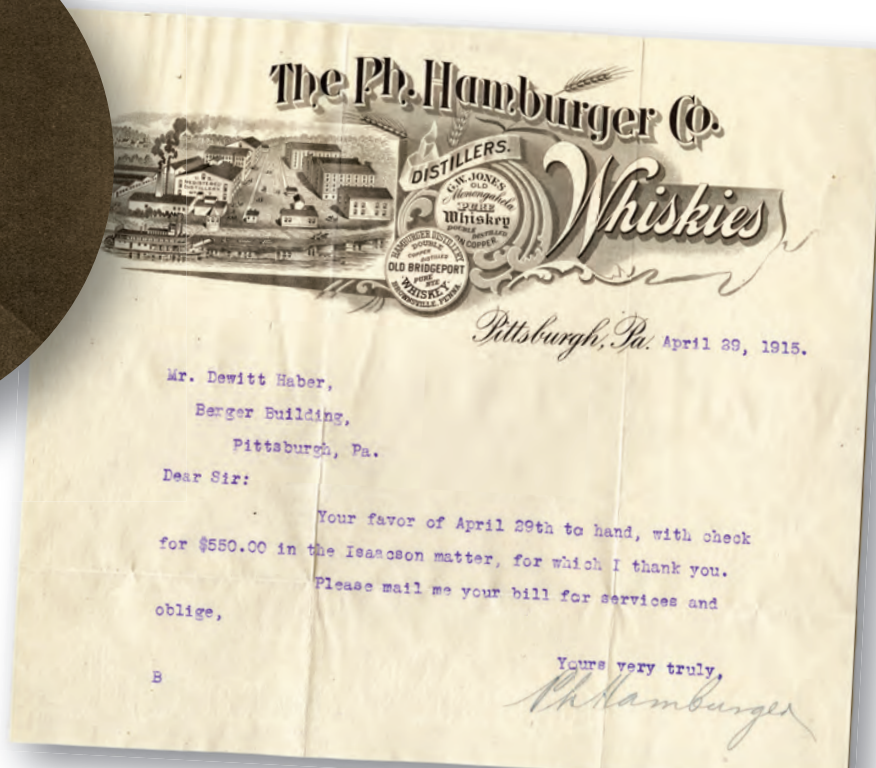 The Ph. Hamburger Co.
DISTILLERS.
Whiskies
G.W. JONES
OLD
Monongahela
PURE
Whiskey
DOUBLE DISTILLED
IN COPPER
REGISTERED
DISTILLERY
HAMBURGER DISTILLERY
DOUBLE
COPPER
DISTILLED
OLD BRIDGEPORT
PURE
RYE
WHISKEY.
BROWNSVILLE, PENNA.
Pittsburgh, Pa. April 29, 1915.
Mr. Dewitt Haber,
Berger Building,
Pittsburgh, Pa.
Dear Sir:
Your favor of April 29th to hand, with check
for $550.00 in the Isaacson matter, for which I thank you.
Please mail me your bill for services and
oblige,
Yours very truly,
B
Ph Hamburger